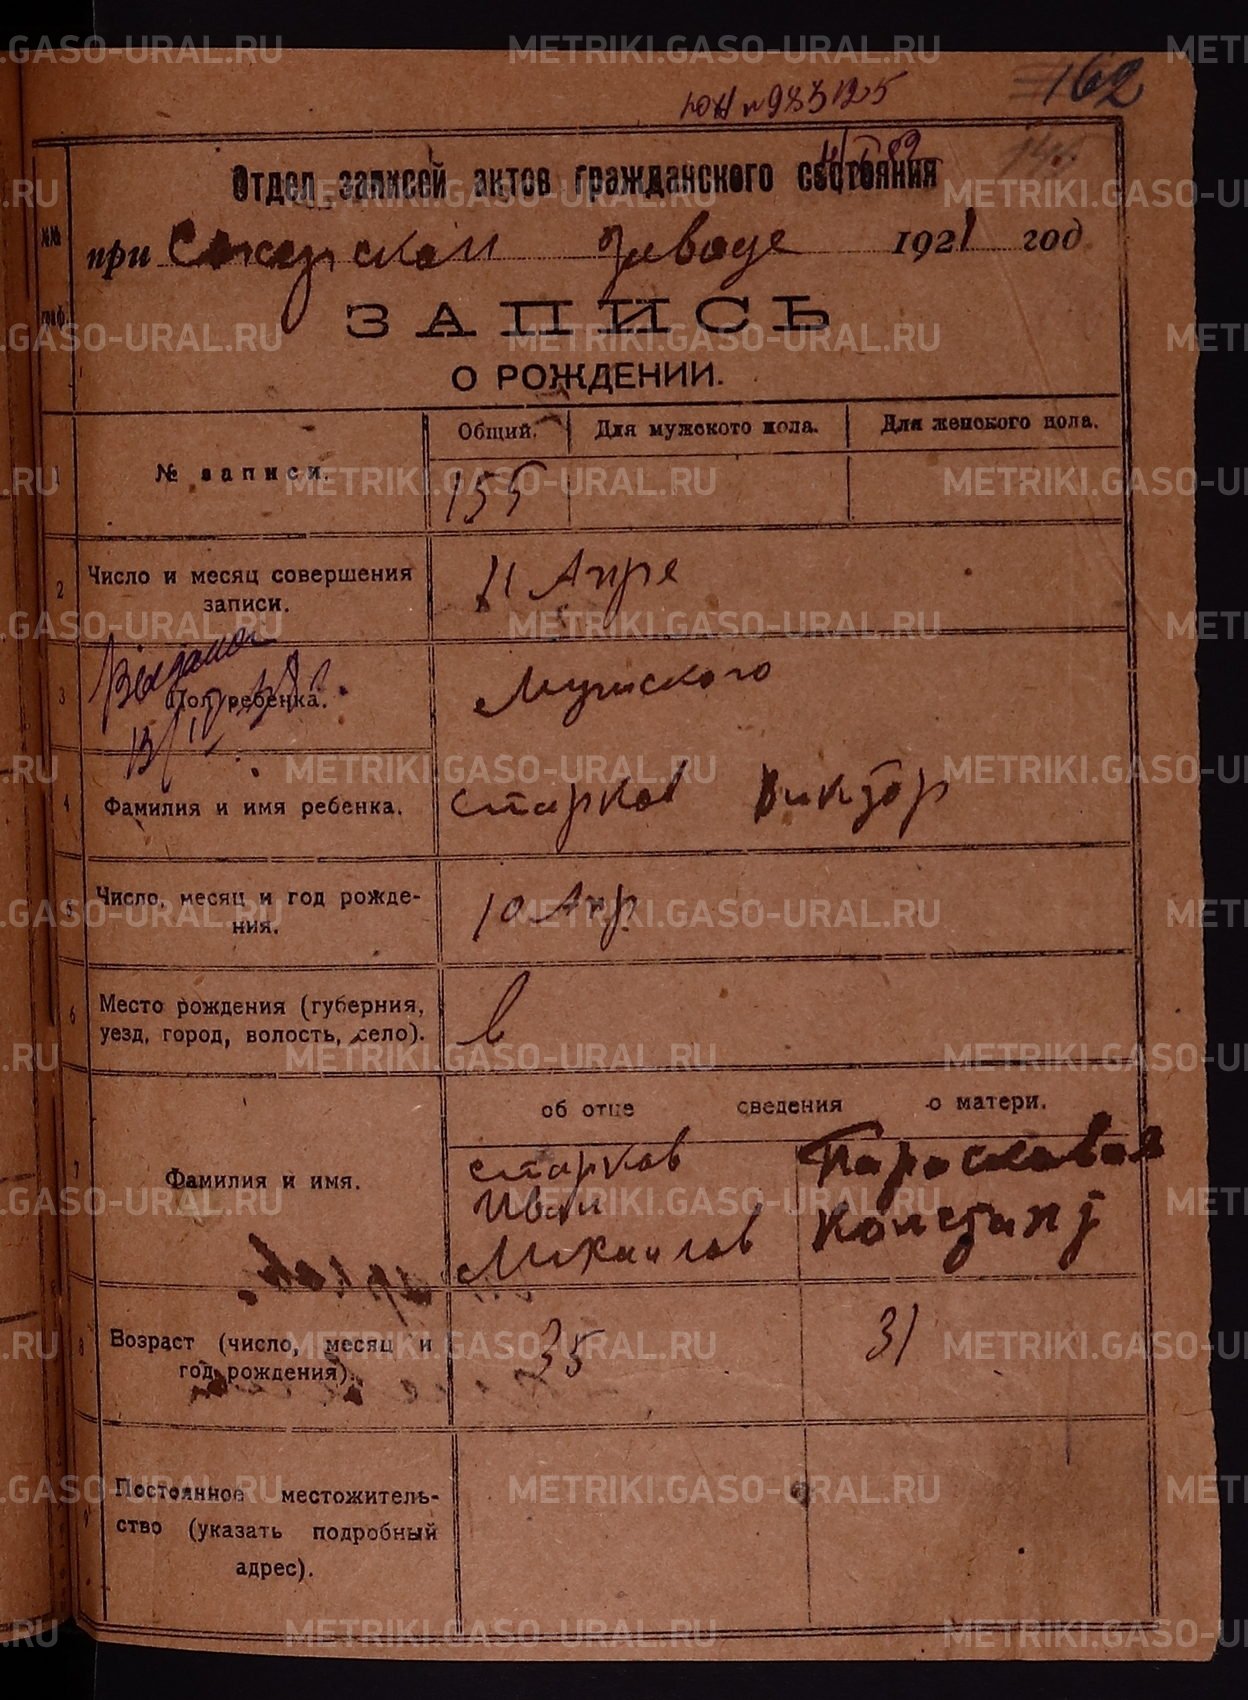 162
ЮН № 983125
Отдел записей актов гражданского состояния
при заводе 1921 год
№№ граф.
ЗАПИСЬ
О РОЖДЕНИИ.
Общий. Для мужского пола. Для женского пола.
1 № записи. 155
2 Число и месяц совершения 11 Апре
записи.
3 Пол ребенка. Мужского
4 Фамилия и имя ребенка. Старков Виктор
5 Число, месяц и год рожде- 10 Апр
ния.
6 Место рождения (губерния,
уезд, город, волость, село). в
об отце сведения о матери.
7 Фамилия и имя. Старков Параскавая
Иван Констант
Михаилов
8 Возраст (число, месяц и 35 31
год рождения).
9 Постоянное местожитель-
ство (указать подробный
адрес).
METRIKI.GASO-URAL.RU